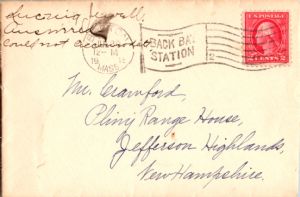 Answered
Could not accommodate
12-M
19
MASS.
BACK BAY
STATION
U.S. POSTAGE
2 CENTS 2
Mr. Crawford,
Pliny Range House,
Jefferson Highlands,
New Hampshire.